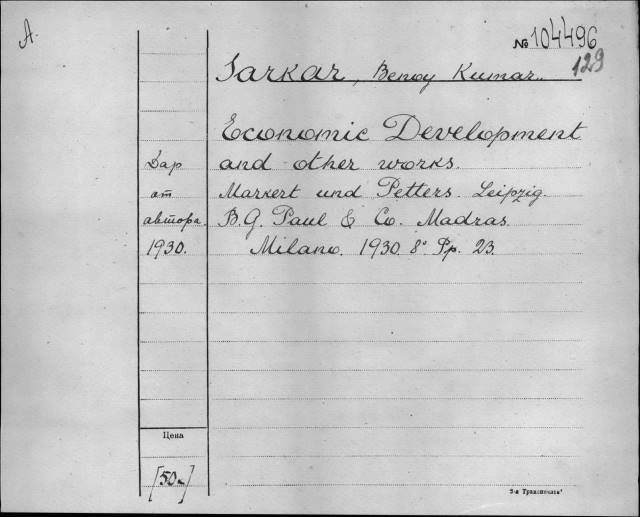 А.
№ 104496
129
Sarkar, Benoy Kumar.
Economic Development
Дар and other works.
от Markert und Petters. Leipzig.
автора. B.G. Paul & Co. Madras.
1930. Milano. 1930. 8° Pp. 23.
Цена
[50к]